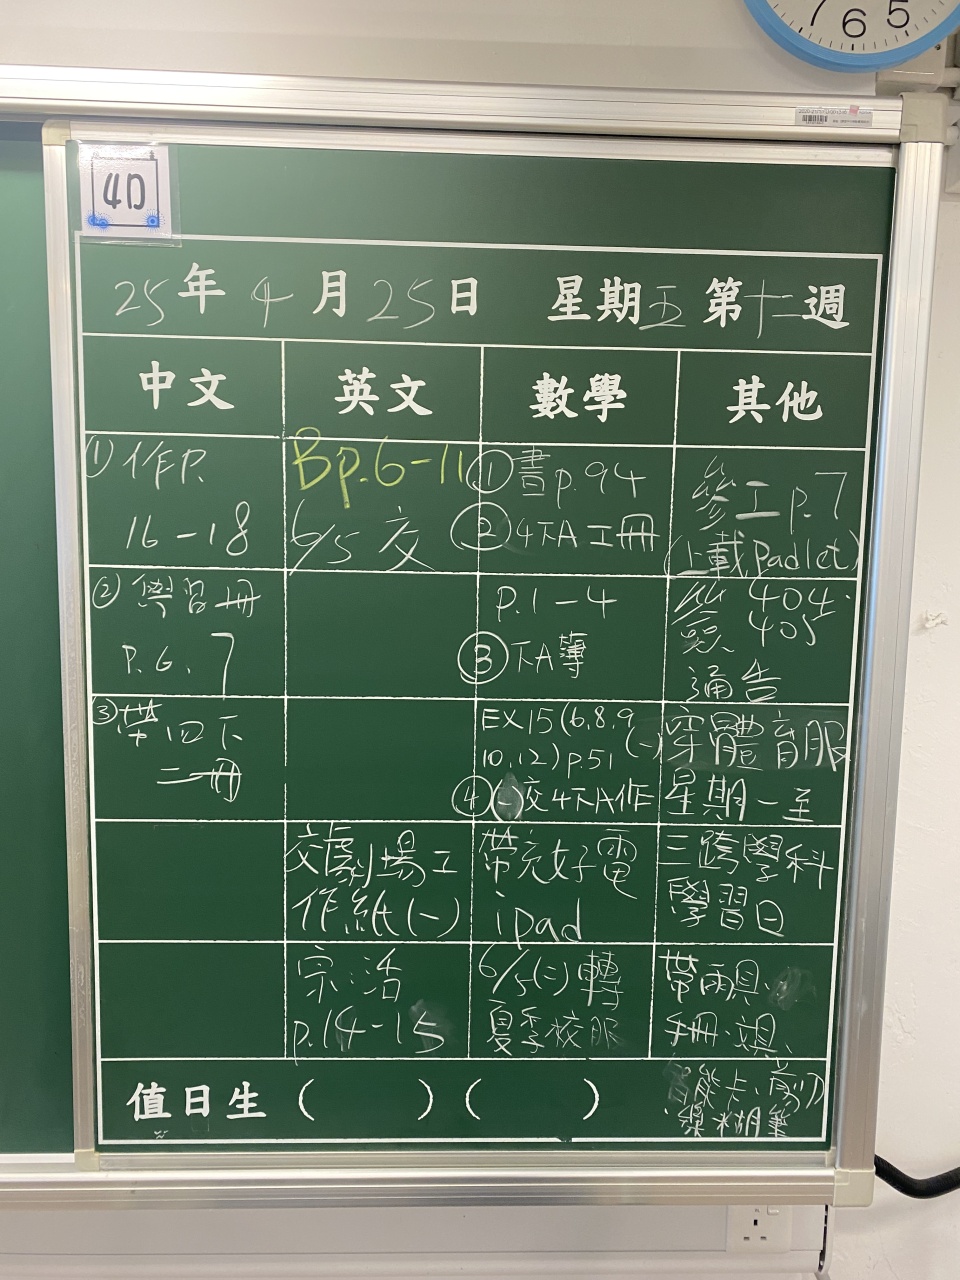 7 6 5
4D
25年4月25日 星期五 第十二週
中文 英文 數學 其他
① 作P.
16-18
② 學習冊
P.6.7
③ 帶四下
二冊
Bp.6-11
6/5 交
交劇場工
作紙(一)
宗.活
p.14-15
① 書p.94
② 4下A工冊
p.1-4
③ 下A簿
EX15(6.8.9
10.12)p.51
④ (一)交4下A作
帶充好電
ipad
6/5(二)轉
夏季校服
p.7
(上載Padlet)
簽 404.
405
通告
(一)穿體育服
星期一至
三跨學科
學習日
帶雨具.
手冊.
智能卡.剪刀
.漿糊筆
值日生( )( )